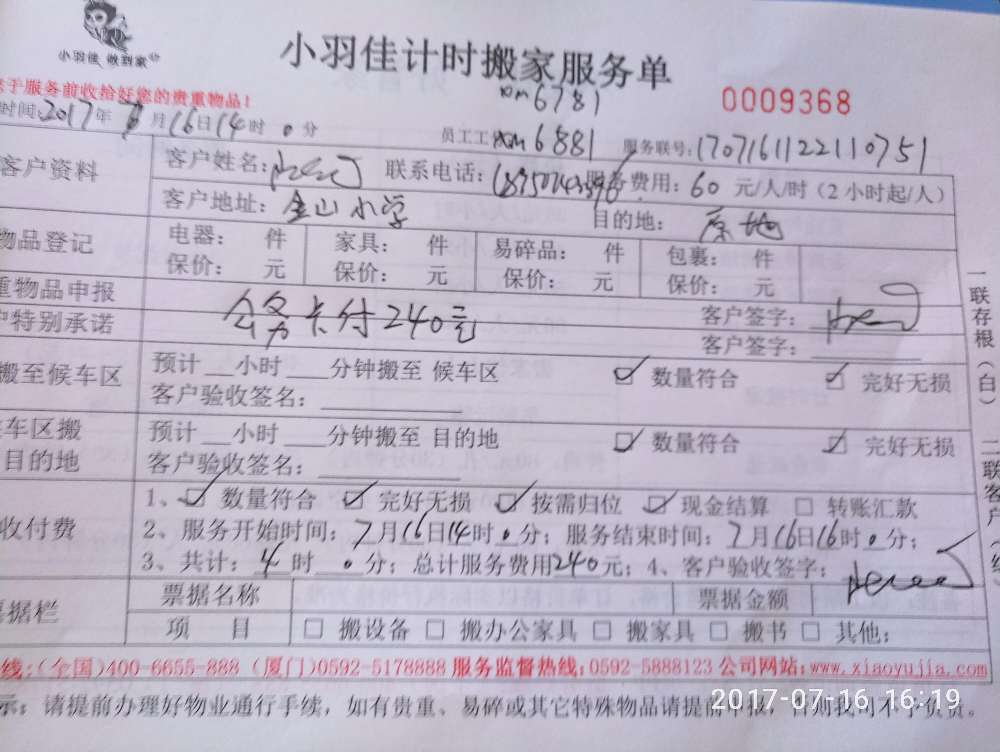 小羽佳 做到家
小羽佳计时搬家服务单
xm6781
0009368
于服务前收拾好您的贵重物品!
时间:2017年 月16日14时0分
员工工 xm6881
服务联号:1707161122110751
客户资料
客户姓名:
联系电话:
服务费用:60 元/人/时(2小时起/人)
客户地址:金山小学
目的地:原地
物品登记
电器: 件 家具: 件 易碎品: 件 包裹: 件
保价: 元 保价: 元 保价: 元 保价: 元
重物品申报
客户签字:
户特别承诺
公务卡付240元
客户签字:
搬至候车区
预计__小时___分钟搬至 候车区
☑ 数量符合 ☑ 完好无损
客户验收签名:
车区搬
目的地
预计__小时___分钟搬至 目的地
☑ 数量符合 ☑ 完好无损
客户验收签名:
收付费
1、☑ 数量符合 ☑ 完好无损 ☑ 按需归位 ☑ 现金结算 □ 转账汇款
2、服务开始时间:7月16日14时0分;服务结束时间:7月16日16时0分;
3、共计:4时0分;总计服务费用240元;4、客户验收签字:
票据栏
票据名称
票据金额
项 目
□ 搬设备 □ 搬办公家具 □ 搬家具 □ 搬书 □ 其他:
线:(全国)400-6655-888 (厦门)0592-5178888 服务监督热线:0592-5888123 公司网站:www.xiaoyujia.com
示:请提前办理好物业通行手续,如有贵重、易碎或其它特殊物品请提前申报,否则我司不予负责。
2017-07-16 16:19
一联存根(白)
二联客户(红